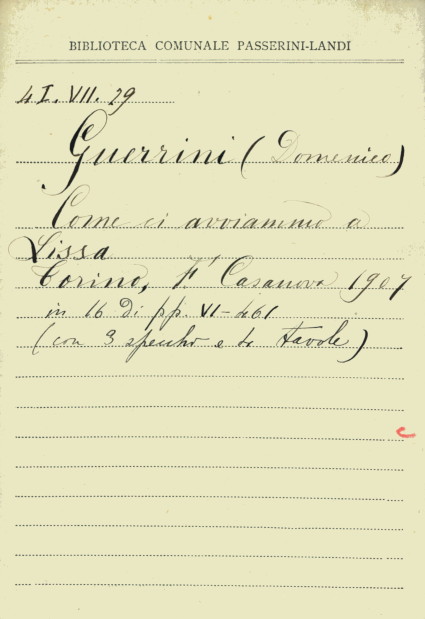 BIBLIOTECA COMUNALE PASSERINI-LANDI
4 I. VII. 29
Guerrini (Domenico)
Come ci avviammo a
Lissa
Torino, F. Casanova 1907
in 16 di pp. VI-461
(con 3 specchi e 4 tavole)